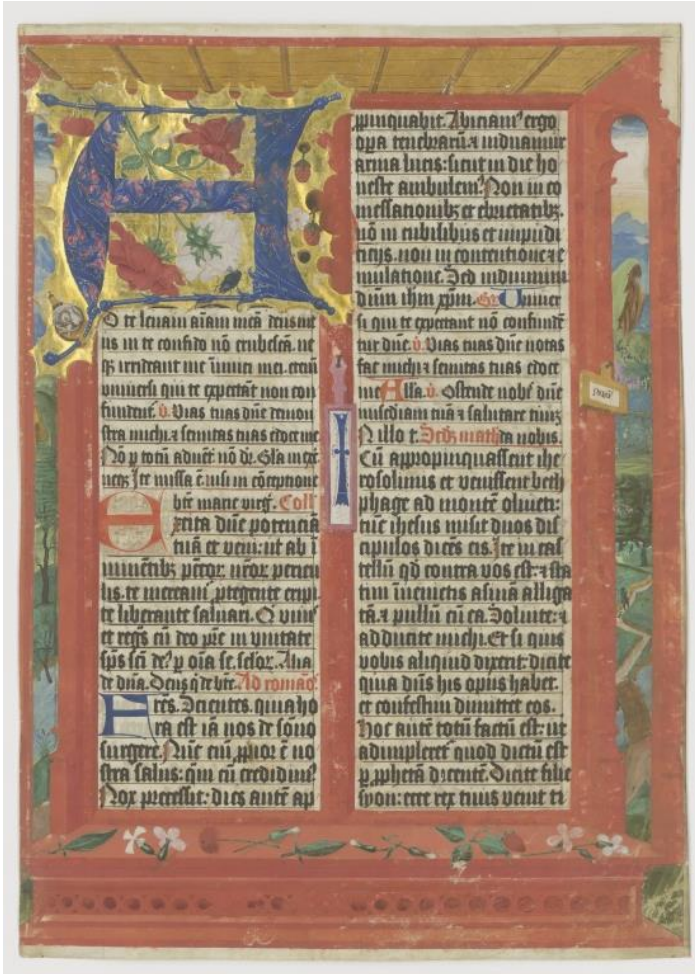 A
D te levavi aīam meā deus me
us in te confido nō erubescā. ne
qȝ irrideant me inimici mei. eteni
universi qui te expectāt non con
fundent. v̄. Vias tuas dn̄e demon
stra michi. ⁊ semitas tuas edoce me
Nō p̄ totū advēt nō dr̄. Gl̄a in exc̄
Ite missa ē nisi in cōceptione
btē marie virḡ. Coll̄
Excita dn̄e potenciā
tuā et veni: ut ab ī
minētibȝ
te mereamur ptegente eripi.
te liberante salvari. Q vivis
et regs cū deo pr̄e in unitate
sp̄s sc̄i de
de dn̄a. Deus q de bt̄e. Ad romāos
Fr̄es. Scientes. quia ho
ra est iā nos de sōno
surgere. Nūc eni ꝓpior ē no
stra salus: qm̄ cū credidimꝰ
Nox precessit: dies autē ap
ꝓpinquabit. Abiciamꝰ ergo
oꝑa tenebrarū. ⁊ induamur
arma lucis: sicut in die ho
neste ambulemꝰ. Non in co
messationibȝ et ebrietatibȝ.
nō in cubilibus et impudi
ticijs. non in contentione ⁊ e
mulatione. Sed induimini
dn̄m ih̄m xp̄m. Gr̄ Univer
si qui te expectant nō confundē
tur dn̄e. v̄. Vias tuas dn̄e notas
fac michi ⁊ semitas tuas edoce
me All̄a. v̄. Ostende nobꝭ dn̄e
mīcdiam tuā ⁊ salutare tuūȝ
da nobis.
In illo t. Scd̄ȝ math
Cū appropinquassent ihe
rosolimis et venissent beth
phage ad montē oliveti:
tūc ihesus misit duos dis
cipulos dicēs eis. Ite in cas
tellū qd̄ contra vos est: ⁊ sta
tim invenietis asinā alliga
tā. ⁊ pullū cū ea. Solvite: ⁊
adducite michi. Et si quis
vobis aliquid dixerit: dicite
quia dn̄s his opus habet.
et confestim dimittet eos.
Hoc autē totū factū est: ut
adimpleret quod dictū est
ꝑ ꝓphetā dicentē. Dicite filie
syon: ecce rex tuus venit ti
I